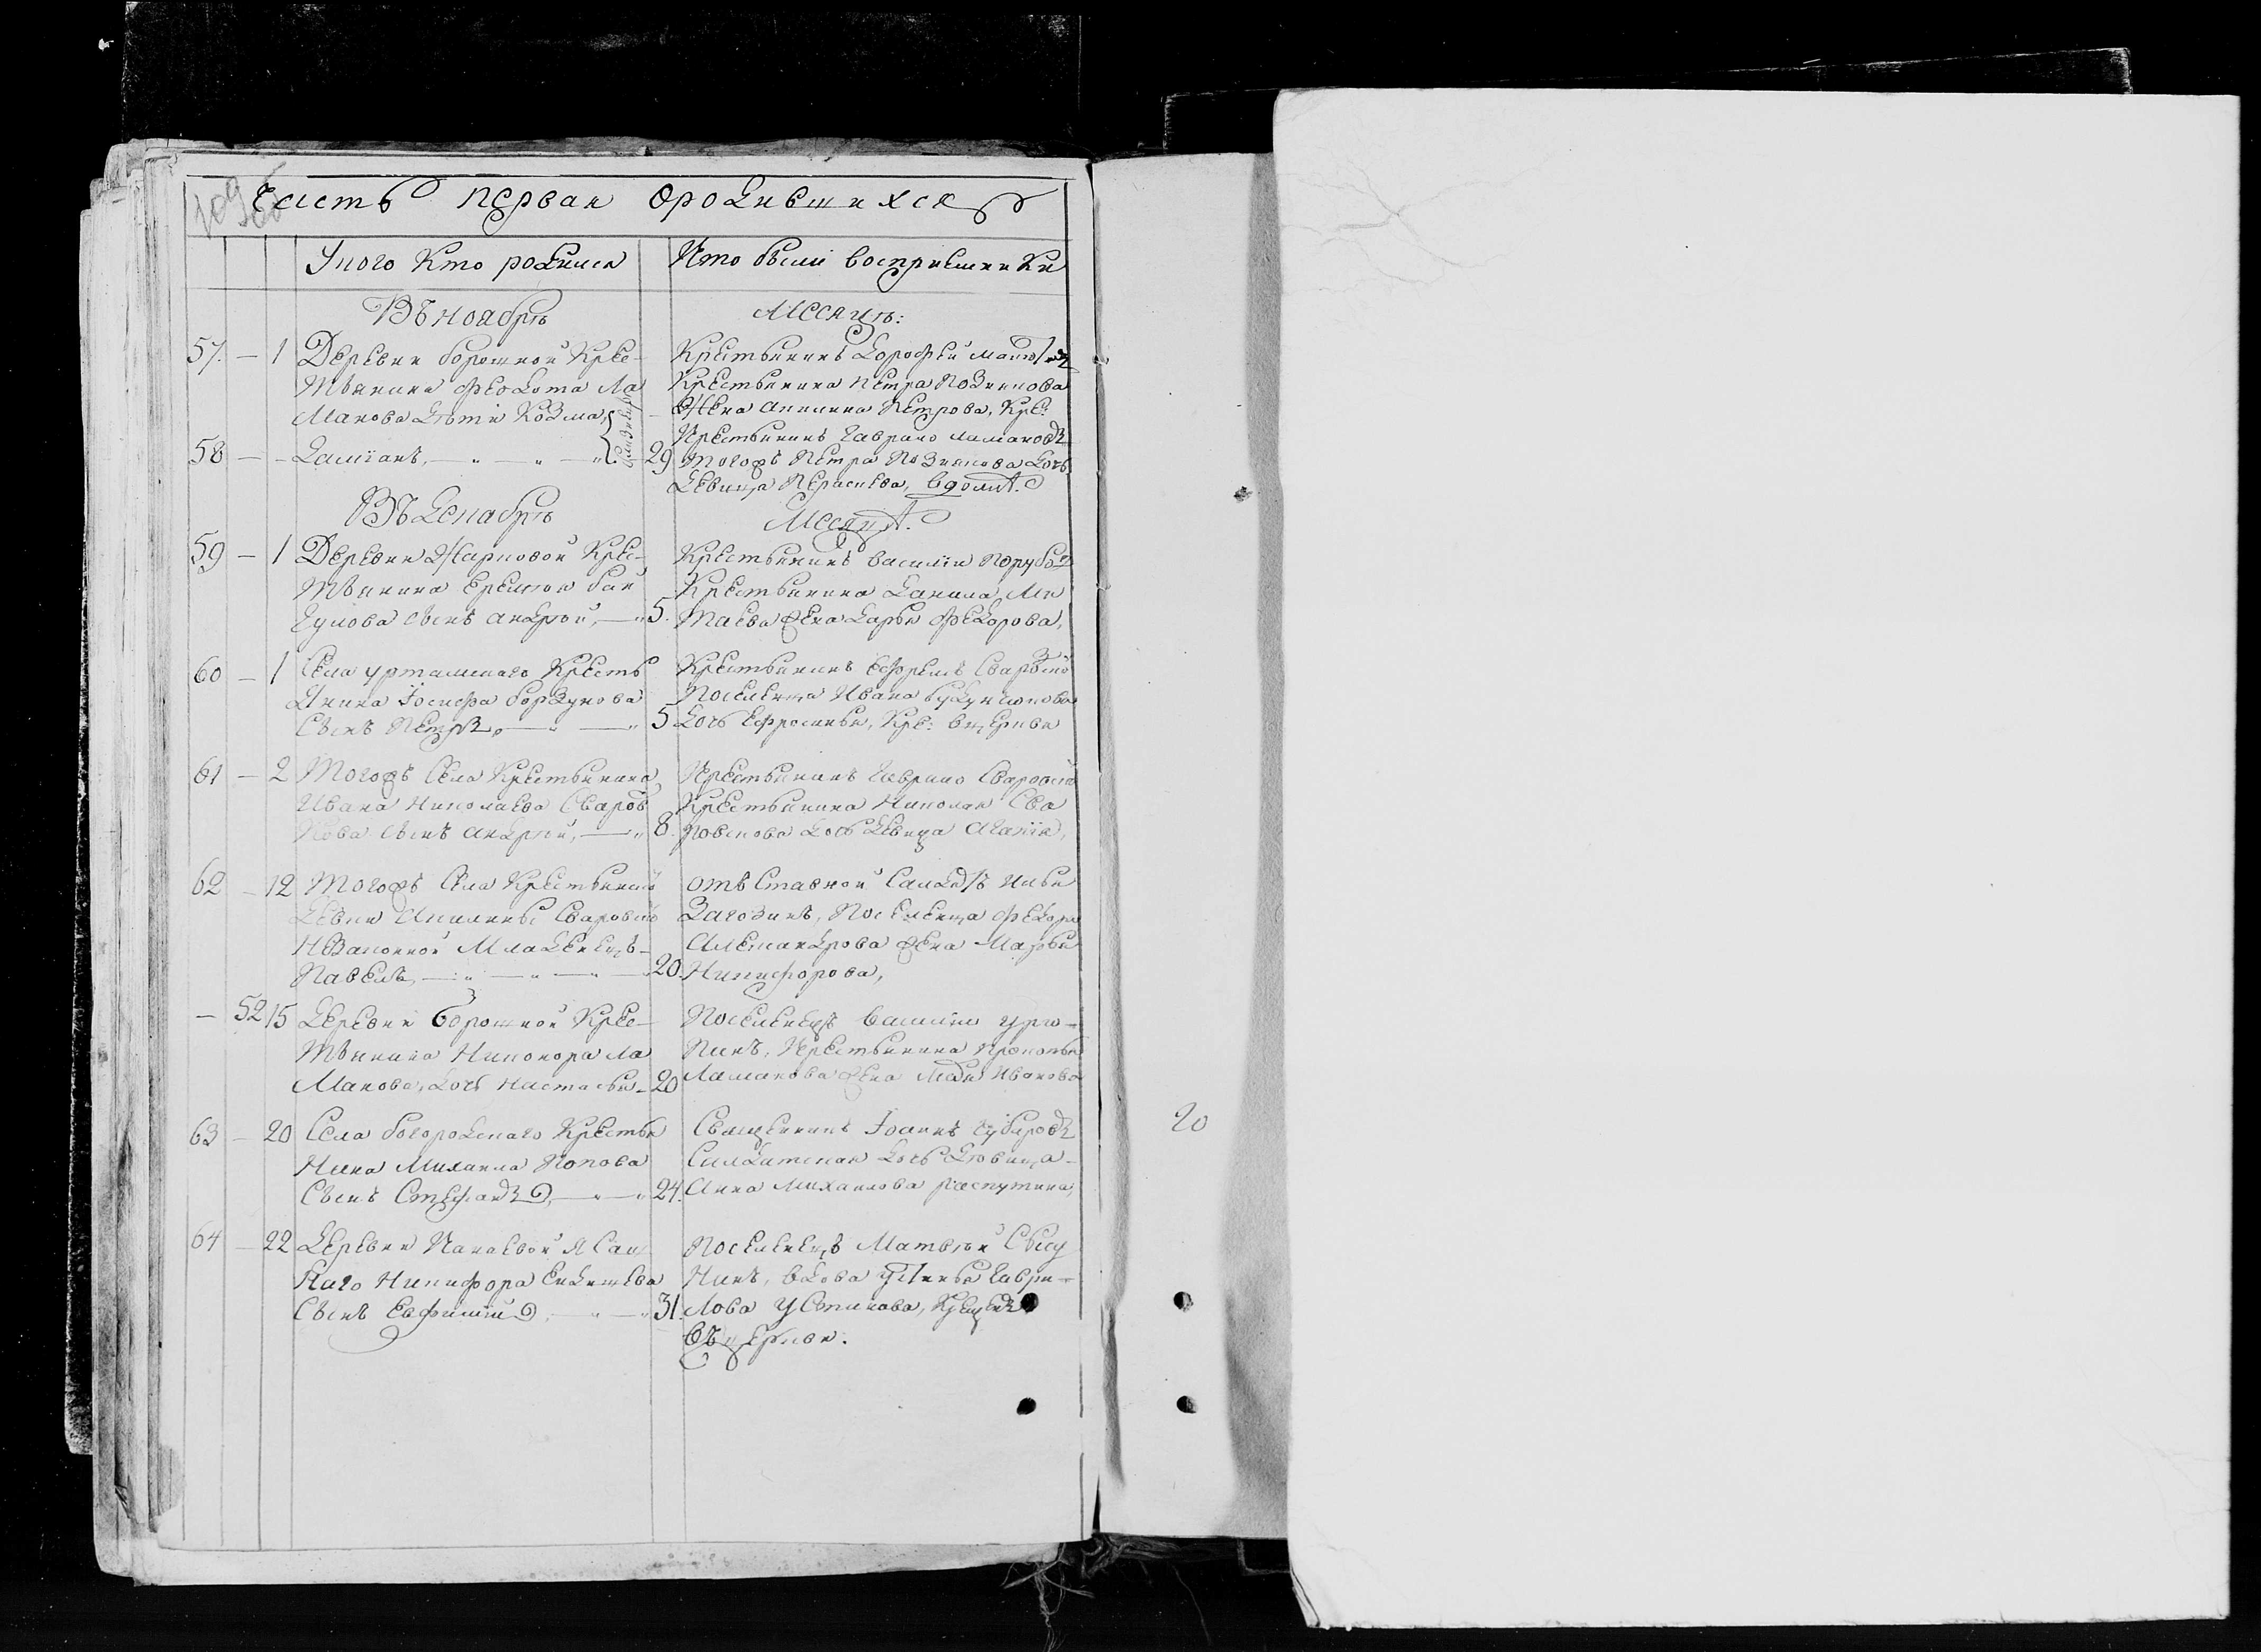 Часть первая ородившихся
У кого кто родился
Кто были восприемники
Въ ноябрѣ
Месяцѣ:
57. — 1 Деревни Борошной Крес-
тьянина Феодота Ла
Манова дѣти Козма,
58 — — Дамiанъ, — „ — „ — „ 29
Крестьянинъ Дорофей
Крестьянина Петра Познякова
Жена Акилина Петрова, Кре:
Крестьянинъ Гаврило Ламановъ
Тогожъ Петра Познякова Дочь
Девица Параскева, в домѣ.
Въ Декабрѣ
Месяцѣ.
59 — 1 Деревни Жарковой Крес-
тьянина Еремея Бай
Гулова сынъ Андрей, — „ 5.
Крестьянинъ Василiи
Крестьянина Данила Ми
таева жена Дарья Федорова,
60 — 1 Села Урташскаго Кресть
янина Iосифа Борзунова
Сынъ Петръ, — „ — „ 5
Крестьянинъ Ефремъ
Поселенца Ивана
Дочь Ефросинья, Кре: в церкви
61 — 2 Тогожъ Села Крестьянина
Ивана Николаева Сваров
Кова сынъ Андрей, — „ 8.
Крестьянинъ Гаврило
Крестьянина Николая Сва
ровскова дочь девица Агапiя,
62 — 12 Тогожъ Села Крестьянской
Девки Акилины
Незаконной Младенецъ —
Павелъ, — „ — „ — „ — 20.
отъ Ставной Салдатъ Илья
Загозинъ, Поселенца Федора
Александрова жена Марья
Никифорова,
— 52 15 Деревни Борошной Крес-
тьянина Никонора Ла
Манова, дочь Настасья — 20
Поселенецъ Василiи Урю-
пинъ, Крестьянина Прокопья
Ламанова жена Иванова
63 — 20 Села Богородскаго Кресть
Нина Михаила Попова
Сынъ Стефанъ, — „ — „ 24.
Священникъ Iоаннъ
дочь девица —
Анна Михайлова Распутина,
64 — 22 Деревни Канаевой Ясаш
Наго Никифора Еидишева
Сынъ Евфимiй, — „ — „ 31.
Поселенецъ Матвей
Нинъ, вдова Устинья Гаври-
Лова Устинова, Крещенъ
въ церкви.
20